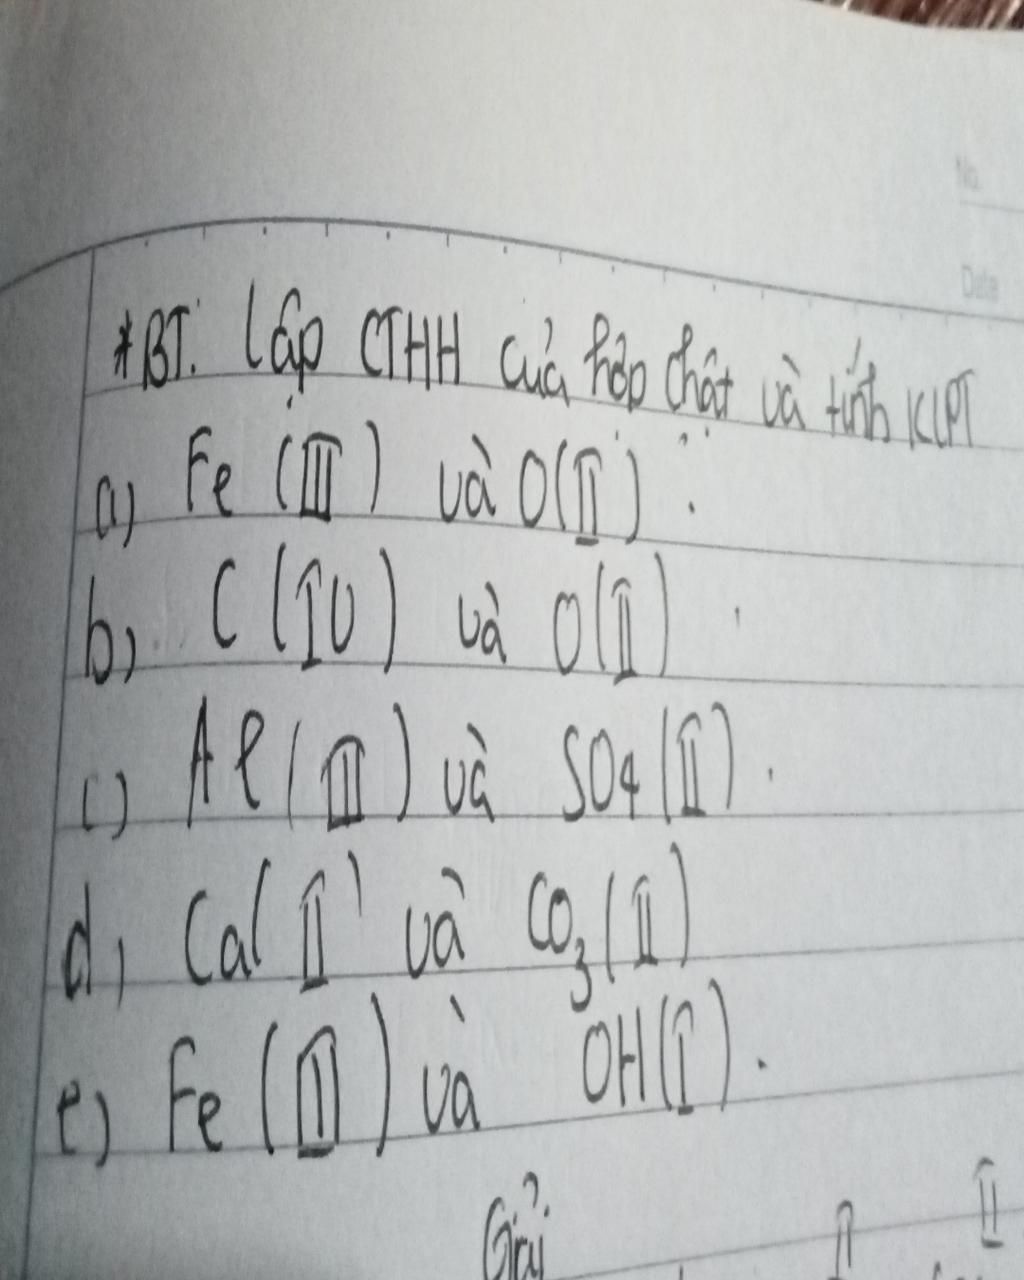 No.
Date
*BT: Lập CTHH của hợp chất và tính KLPT
a) Fe (III) và O(II).
b) C (IV) và O(II)
c) Al (III) và SO4 (II).
d) Ca( II) và CO3 (II)
e) Fe (III) và OH(I).
Giải
II
II